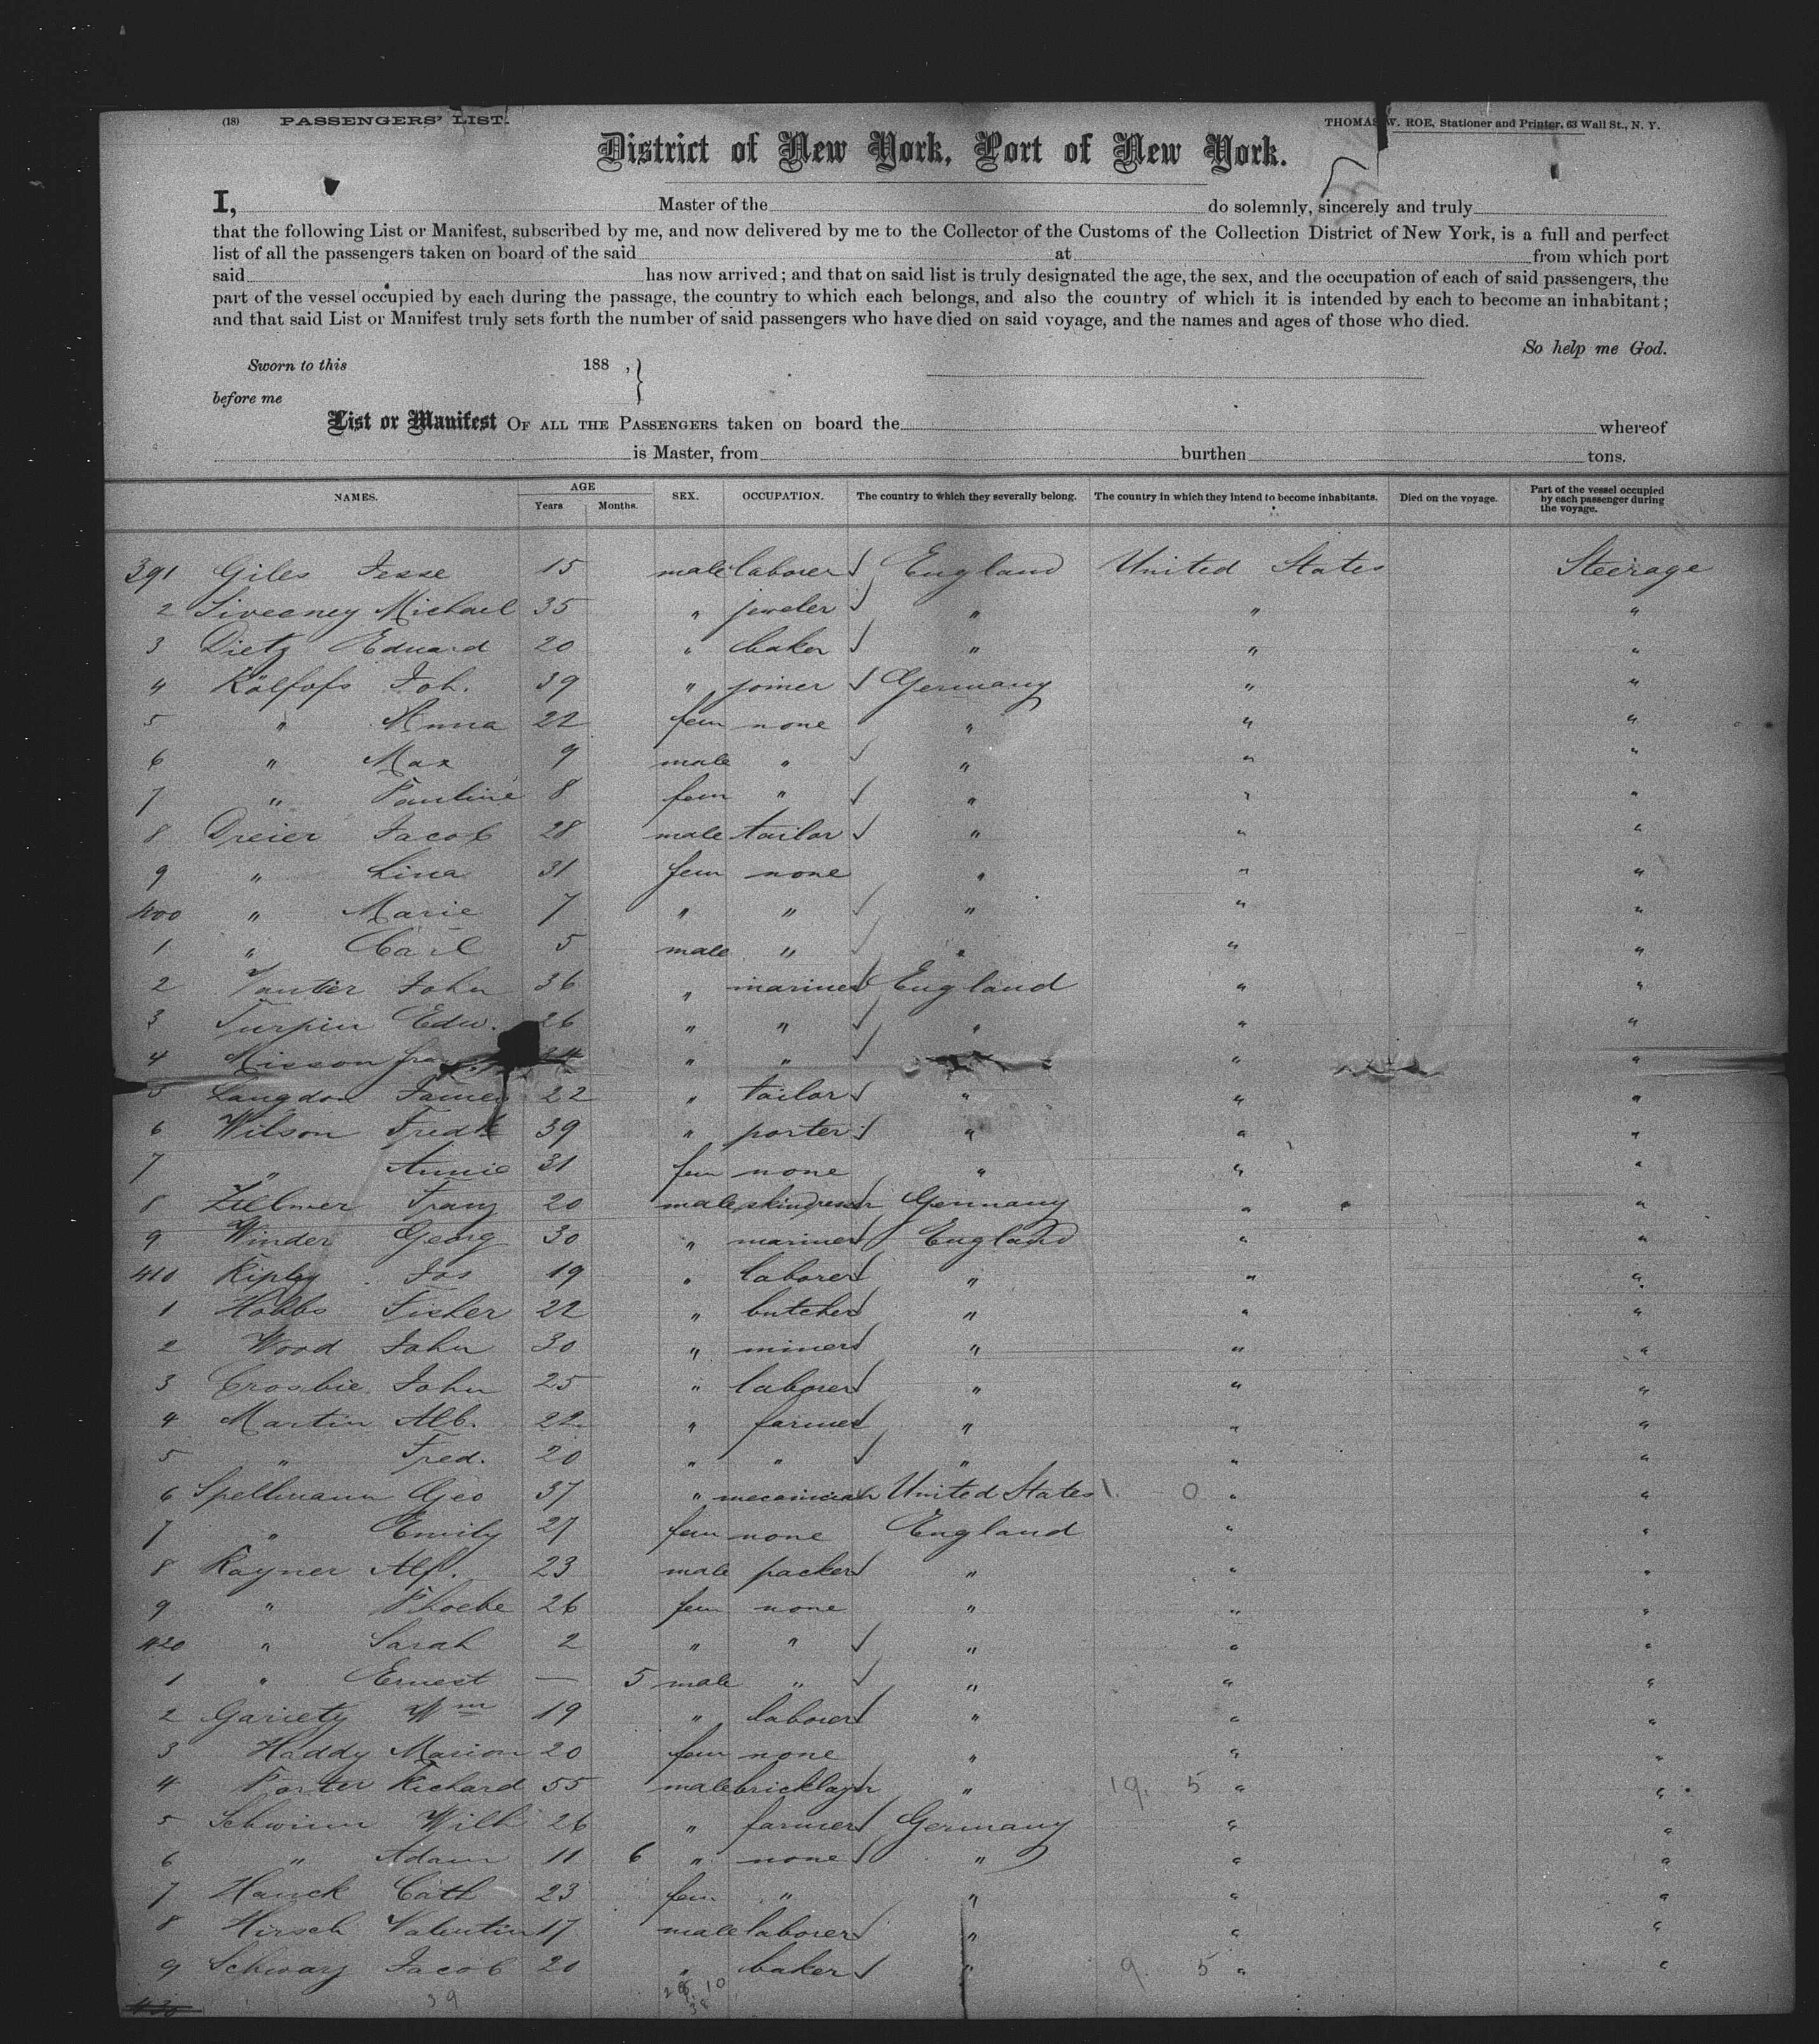 (18) PASSENGERS' LIST. THOMAS W. ROE, Stationer and Printer, 63 Wall St., N. Y.
District of New York, Port of New York.
I, Master of the do solemnly, sincerely and truly
that the following List or Manifest, subscribed by me, and now delivered by me to the Collector of the Customs of the Collection District of New York, is a full and perfect
list of all the passengers taken on board of the said at from which port
said has now arrived; and that on said list is truly designated the age, the sex, and the occupation of each of said passengers, the
part of the vessel occupied by each during the passage, the country to which each belongs, and also the country of which it is intended by each to become an inhabitant;
and that said List or Manifest truly sets forth the number of said passengers who have died on said voyage, and the names and ages of those who died.
So help me God.
Sworn to this 188 ,
before me
List or Manifest OF ALL THE PASSENGERS taken on board the whereof
is Master, from burthen tons.
NAMES. AGE Years Months. SEX. OCCUPATION. The country to which they severally belong. The country in which they intend to become inhabitants. Died on the voyage. Part of the vessel occupied by each passenger during the voyage.
391 Giles Jesse 15 male laborer England United States Steerage
2 Sweeney Michael 35 " jeweler " " "
3 Dietz Eduard 20 " baker " " "
4 Joh. 39 " joiner Germany " "
5 " Anna 22 fem none " " "
6 " Max 9 male " " " "
7 " Pauline 8 fem " " " "
8 Dreier Jacob 28 male tailor " " "
9 " Lina 31 fem none " " "
400 " Marie 7 " " " " "
1 " Carl 5 male " " " "
2 John 36 " mariner England " "
3 Turpin Edw. 26 " " " " "
4 24 " " " "
5 Langdon James 22 " tailor " " "
6 Wilson Fredk 39 " porter " " "
7 " Annie 31 fem none " " "
8 Zillmer Franz 20 male skindresser Germany " "
9 Winder Georg 30 " mariner England " "
410 Ripley Jos 19 " laborer " " "
1 Hobbs Fisher 22 " butcher " " "
2 Wood John 30 " miner " " "
3 Crosbie John 25 " laborer " " "
4 Martin Alb. 22 " farmer " " "
5 " Fred. 20 " " " " "
6 Spellmann Geo 37 " mecanician United States 1. 0 " "
7 " Emily 27 fem none England " "
8 Rayner Alf. 23 male packer " " "
9 " Phoebe 26 fem none " " "
420 " Sarah 2 " " " " "
1 " Ernest — 5 male " " " "
2 Gariety Wm 19 " laborer " " "
3 Haddy Marion 20 fem none " " "
4 Porter Richard 55 male bricklayer " 19. 5 " "
5 Schwinn Wilh 26 " farmer Germany " "
6 " Adam 11 6 " none " " "
7 Hauck Cath 23 fem " " " "
8 Hirsch Valentin 17 male laborer " " "
9 Schwarz Jacob 20 " baker " 9. 5 " "
430 39 10
38